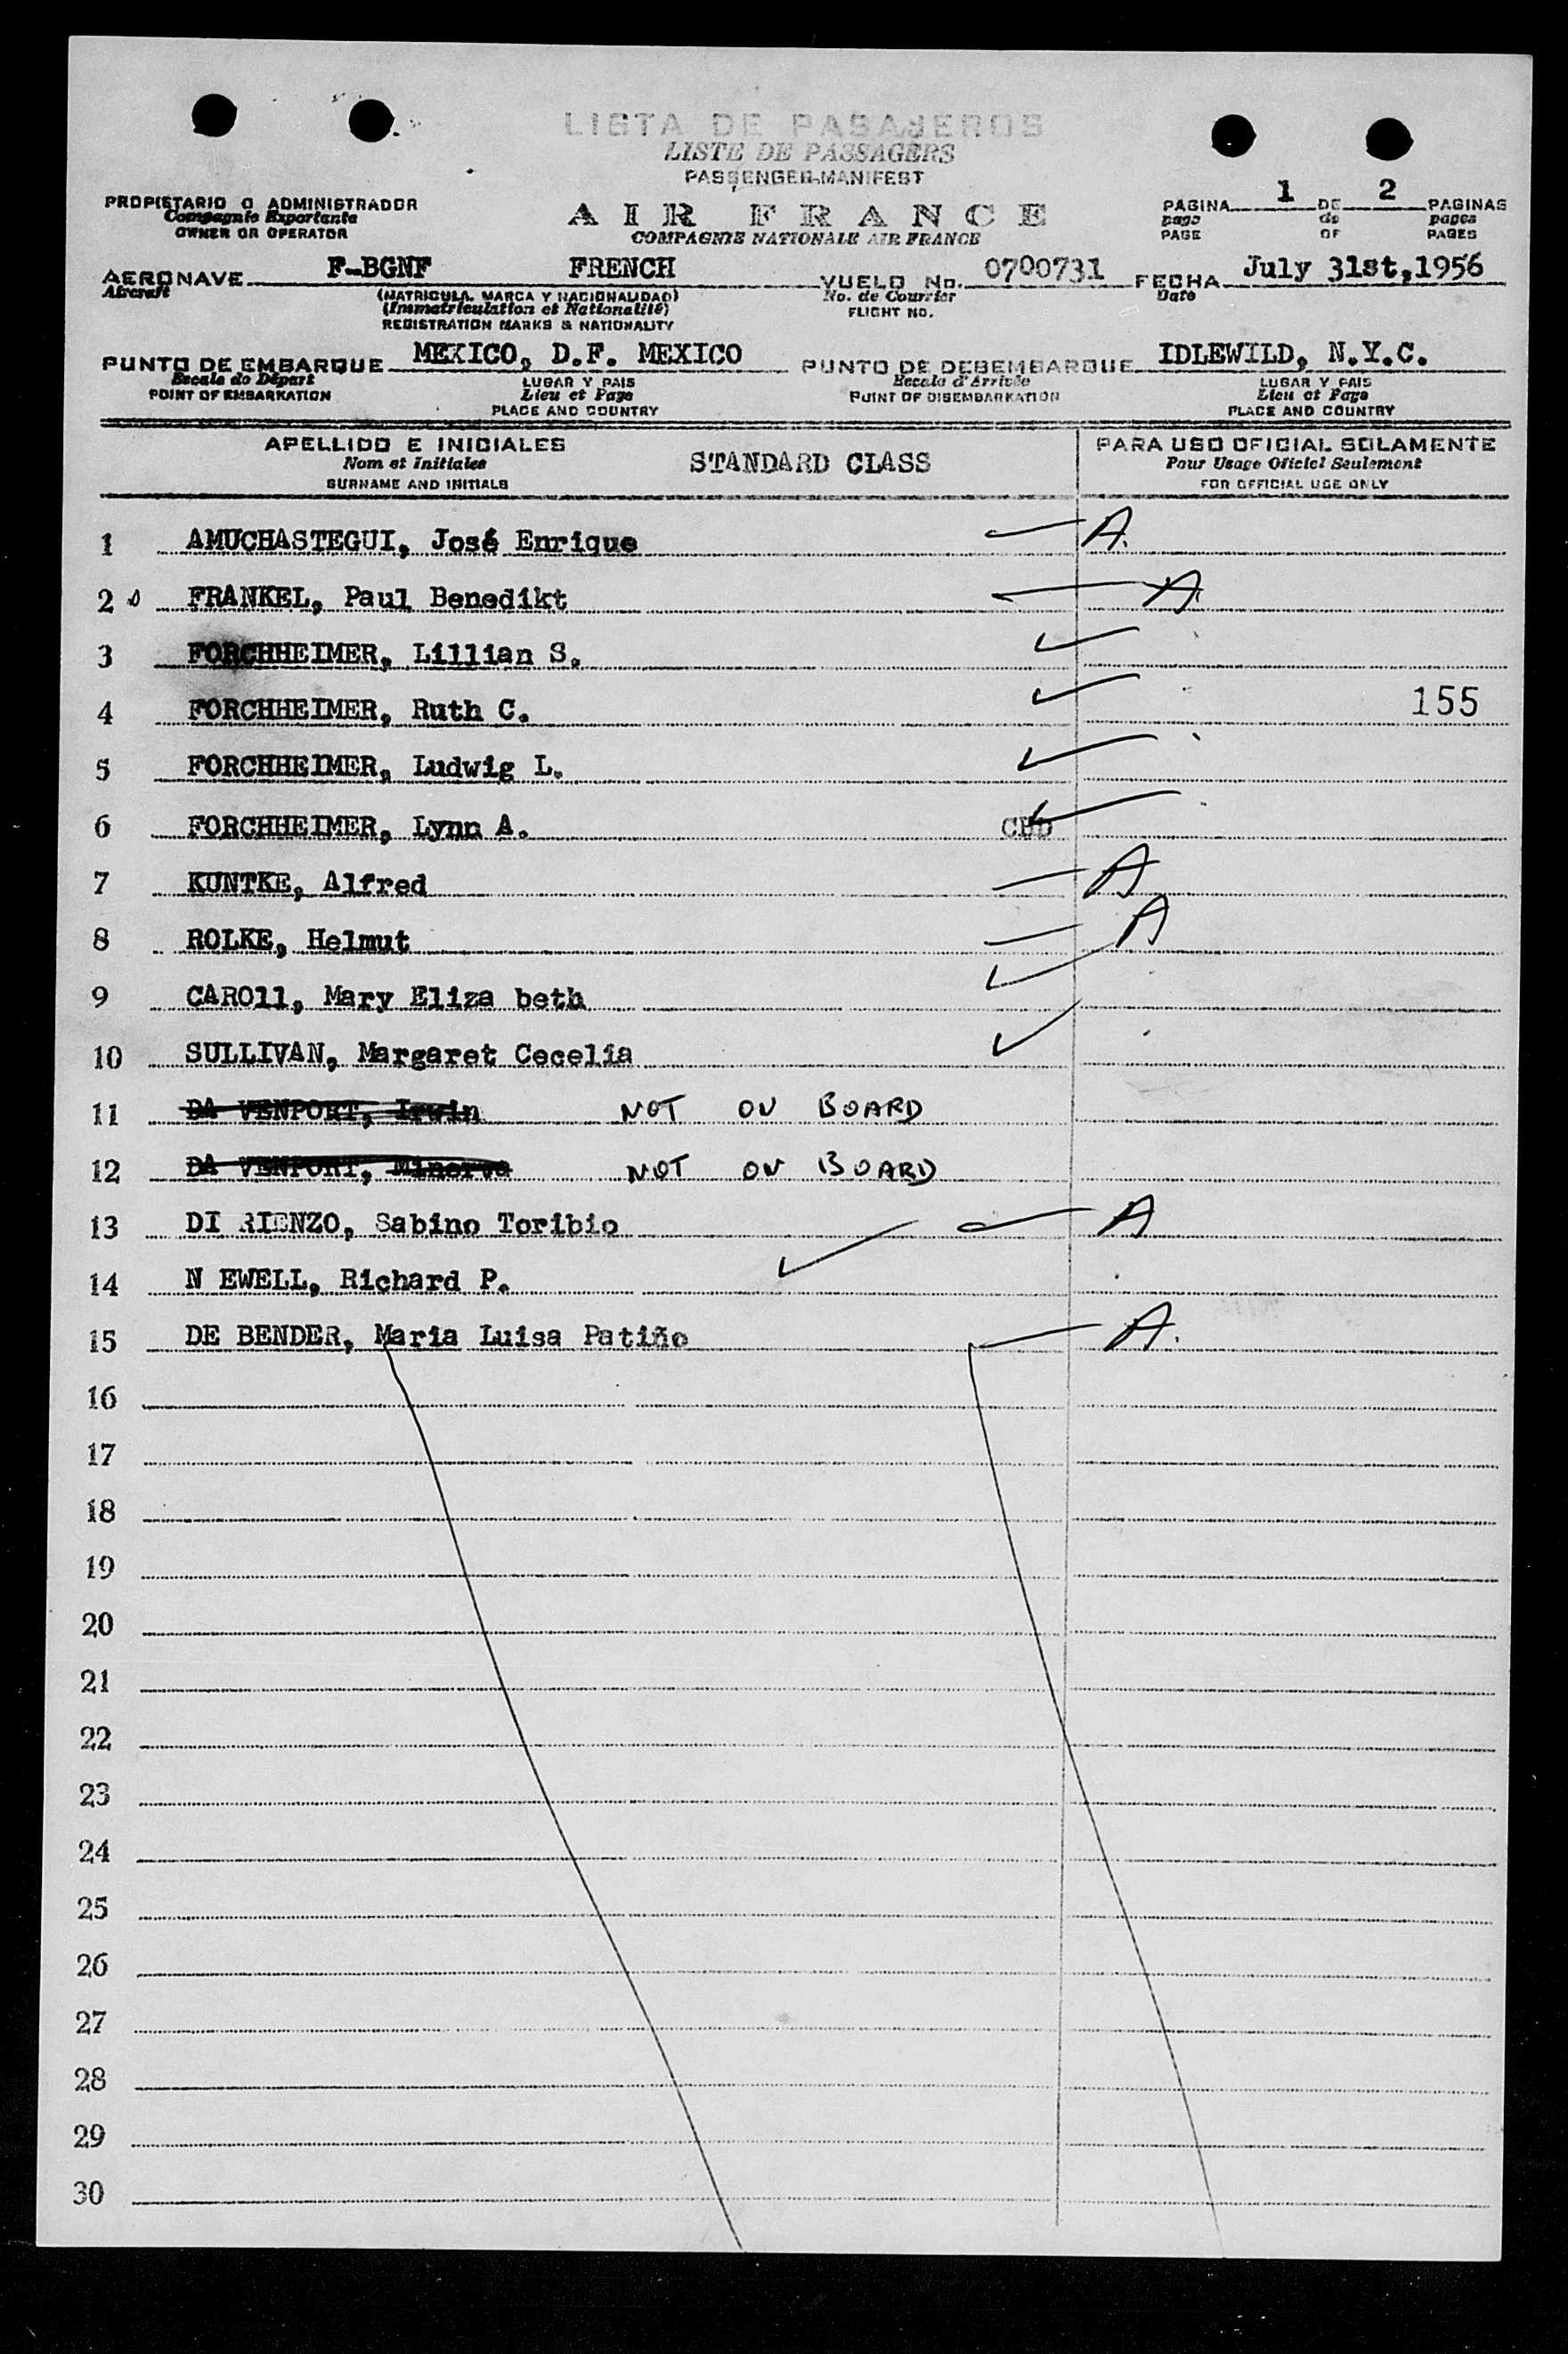 LISTA DE PASAJEROS
LISTE DE PASSAGERS
PASSENGER MANIFEST
PROPIETARIO O ADMINISTRADOR
Compagnie Exportante
OWNER OR OPERATOR
AIR FRANCE
COMPAGNIE NATIONALE AIR FRANCE
PAGINA 1 DE 2 PAGINAS
page de pages
PAGE OF PAGES
AERONAVE F-BGNF FRENCH VUELO No. 0700731 FECHA July 31st,1956
Aircraft (MATRICULA, MARCA Y NACIONALIDAD) No. de Courrier Date
(Immatriculation et Nationalité) FLIGHT NO.
REGISTRATION MARKS & NATIONALITY
PUNTO DE EMBARQUE MEXICO, D.F. MEXICO PUNTO DE DESEMBARQUE IDLEWILD, N.Y.C.
Escale de Départ LUGAR Y PAIS Escale d'Arrivée LUGAR Y PAIS
POINT OF EMBARKATION Lieu et Pays POINT OF DISEMBARKATION Lieu et Pays
PLACE AND COUNTRY PLACE AND COUNTRY
APELLIDO E INICIALES STANDARD CLASS PARA USO OFICIAL SOLAMENTE
Nom et Initiales Pour Usage Oficiel Seulement
SURNAME AND INITIALS FOR OFFICIAL USE ONLY
1 AMUCHASTEGUI, José Enrique A.
2 FRANKEL, Paul Benedikt A
3 FORCHHEIMER, Lillian S.
4 FORCHHEIMER, Ruth C. 155
5 FORCHHEIMER, Ludwig L.
6 FORCHHEIMER, Lynn A. CHD
7 KUNTKE, Alfred A
8 ROLKE, Helmut A
9 CAROll, Mary Eliza beth
10 SULLIVAN, Margaret Cecelia
11 DA VENPORT, Irwin NOT ON BOARD
12 DA VENPORT, Minerva NOT ON BOARD
13 DI RIENZO, Sabino Toribio A
14 N EWELL, Richard P.
15 DE BENDER, Maria Luisa Patiño A.
16
17
18
19
20
21
22
23
24
25
26
27
28
29
30